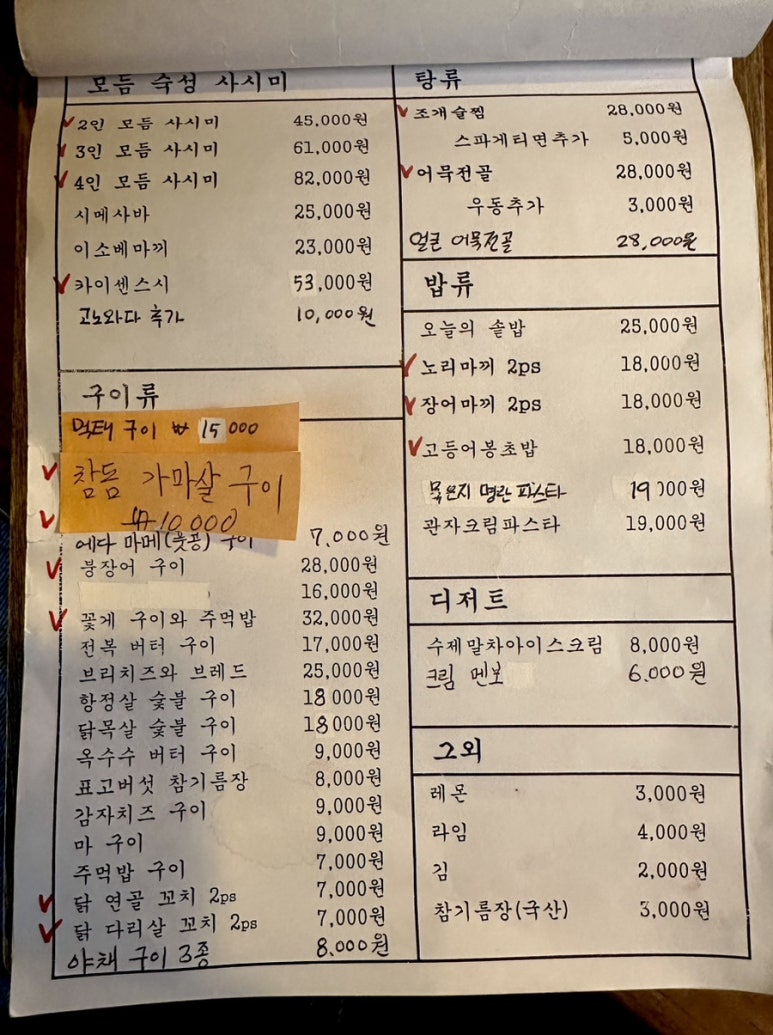 모듬 숙성 사시미
2인 모듬 사시미 45,000원
3인 모듬 사시미 61,000원
4인 모듬 사시미 82,000원
시메사바 25,000원
이소베마끼 23,000원
카이센스시 53,000원
고노와다 추가 10,000원
구이류
먹태 구이 ₩ 15000
참돔 가마살 구이
₩10,000
에다 마메(풋콩) 구이 7,000원
붕장어 구이 28,000원
16,000원
꽃게 구이와 주먹밥 32,000원
전복 버터 구이 17,000원
브리치즈와 브레드 25,000원
항정살 숯불 구이 18000원
닭목살 숯불 구이 18000원
옥수수 버터 구이 9,000원
표고버섯 참기름장 8,000원
감자치즈 구이 9,000원
마 구이 9,000원
주먹밥 구이 7,000원
닭 연골 꼬치 2ps 7,000원
닭 다리살 꼬치 2ps 7,000원
야채 구이 3종 8.000원
탕류
조개술찜 28,000원
스파게티면추가 5,000원
어묵전골 28,000원
우동추가 3,000원
얼큰 어묵전골 28,000원
밥류
오늘의 솥밥 25,000원
노리마끼 2ps 18,000원
장어마끼 2ps 18,000원
고등어봉초밥 18,000원
묵은지 명란 파스타 19000원
관자크림파스타 19,000원
디저트
수제말차아이스크림 8,000원
크림 멘보 6.000원
그외
레몬 3,000원
라임 4,000원
김 2,000원
참기름장(국산) 3,000원